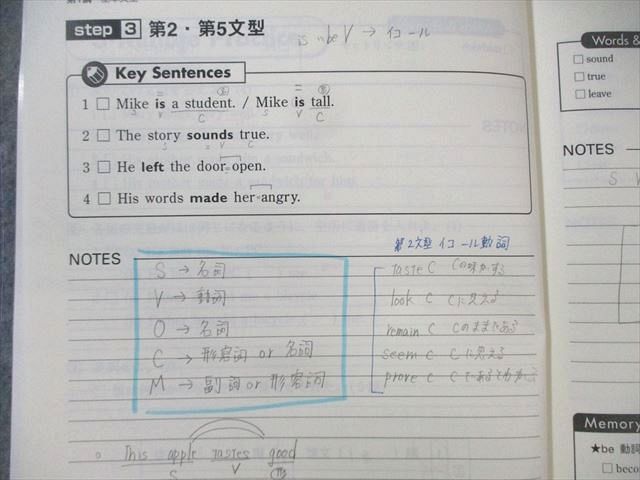 step 3 第2・第5文型
is は be V → イコール
Key Sentences
1 □ Mike is a student. / Mike is tall.
S C S C
2 □ The story sounds true.
S V C
3 □ He left the door open.
4 □ His words made her angry.
NOTES
S → 名詞
V → 動詞
O → 名詞
C → 形容詞 or 名詞
M → 副詞 or 形容詞
第2文型 イコール動詞
taste C Cの味がする
look C Cに見える
remain C Cのままである
seem C Cに思える
prove C Cであるとわかる
This apple tastes good
S V C
Words &
□ sound
□ true
□ leave
NOTES
S V
Memory
★be 動詞